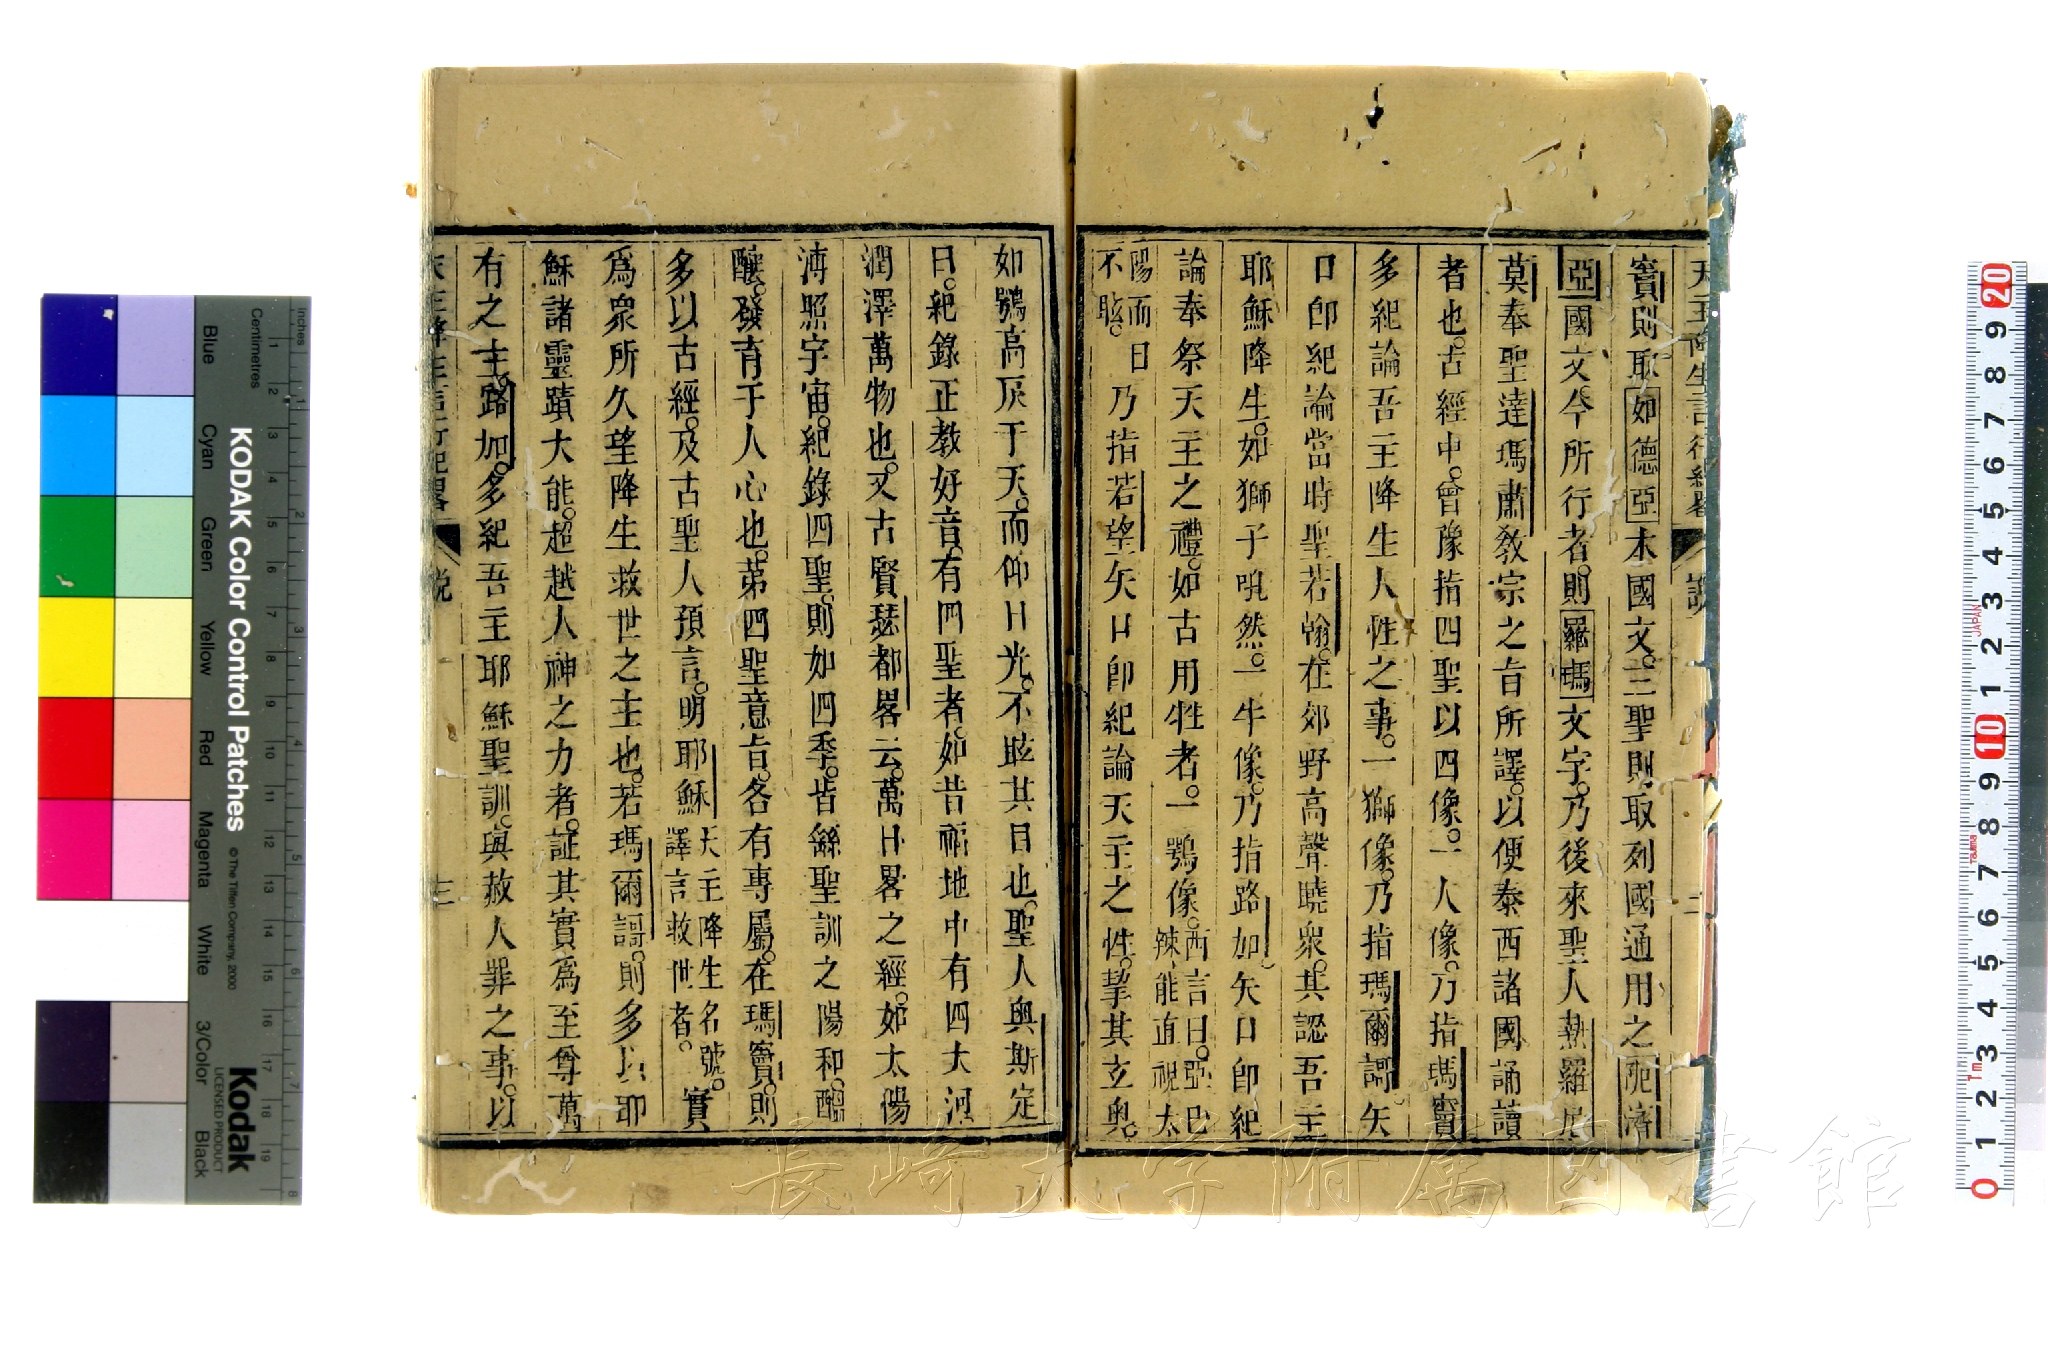 天主降生言行紀畧 說 二
竇則取如德亞本國文三聖則取列國通用之厄濟
亞國文今所行者則羅瑪文字乃後來聖人熱羅尼
莫奉聖達瑪肅教宗之旨所譯以便泰西諸國誦讀
者也古經中曾豫指四聖以四像一人像乃指瑪竇
多紀論吾主降生人性之事一獅像乃指瑪爾謌矢
口即紀論當時聖若翰在郊野高聲曉衆其認吾主
耶穌降生如獅子吼然一牛像乃指路加矢口即紀
論奉祭天主之禮如古用牲者一鶚像西言曰亞巳
辣能直視太
陽而日
不眩乃指若望矢口即紀論天主之性挈其玄奥
如鶚高戾于天而仰日光不眩其目也聖人奥斯定
曰紀錄正教好音有四聖者如昔福地中有四大河
潤澤萬物也又古賢瑟都畧云萬日畧之經如太陽
溥照宇宙紀錄四聖則如四季皆繇聖訓之陽和醖
釀發育于人心也第四聖意旨各有專屬在瑪竇則
多以古經及古聖人預言明耶穌天主降生名號
譯言救世者實
爲衆所久望降生救世之主也若瑪爾謌則多以耶
穌諸靈蹟大能超越人神之力者証其實爲至尊萬
有之主路加多紀吾主耶穌聖訓與赦人罪之事以
天主降生言行紀畧 說 三
KODAK Color Control Patches
© The Tiffen Company, 2000
Kodak
LICENSED PRODUCT
Inches
Centimetres
Blue
Cyan
Green
Yellow
Red
Magenta
White
3/Color
Black
JAPAN
Tajima
長崎大学附属図書館